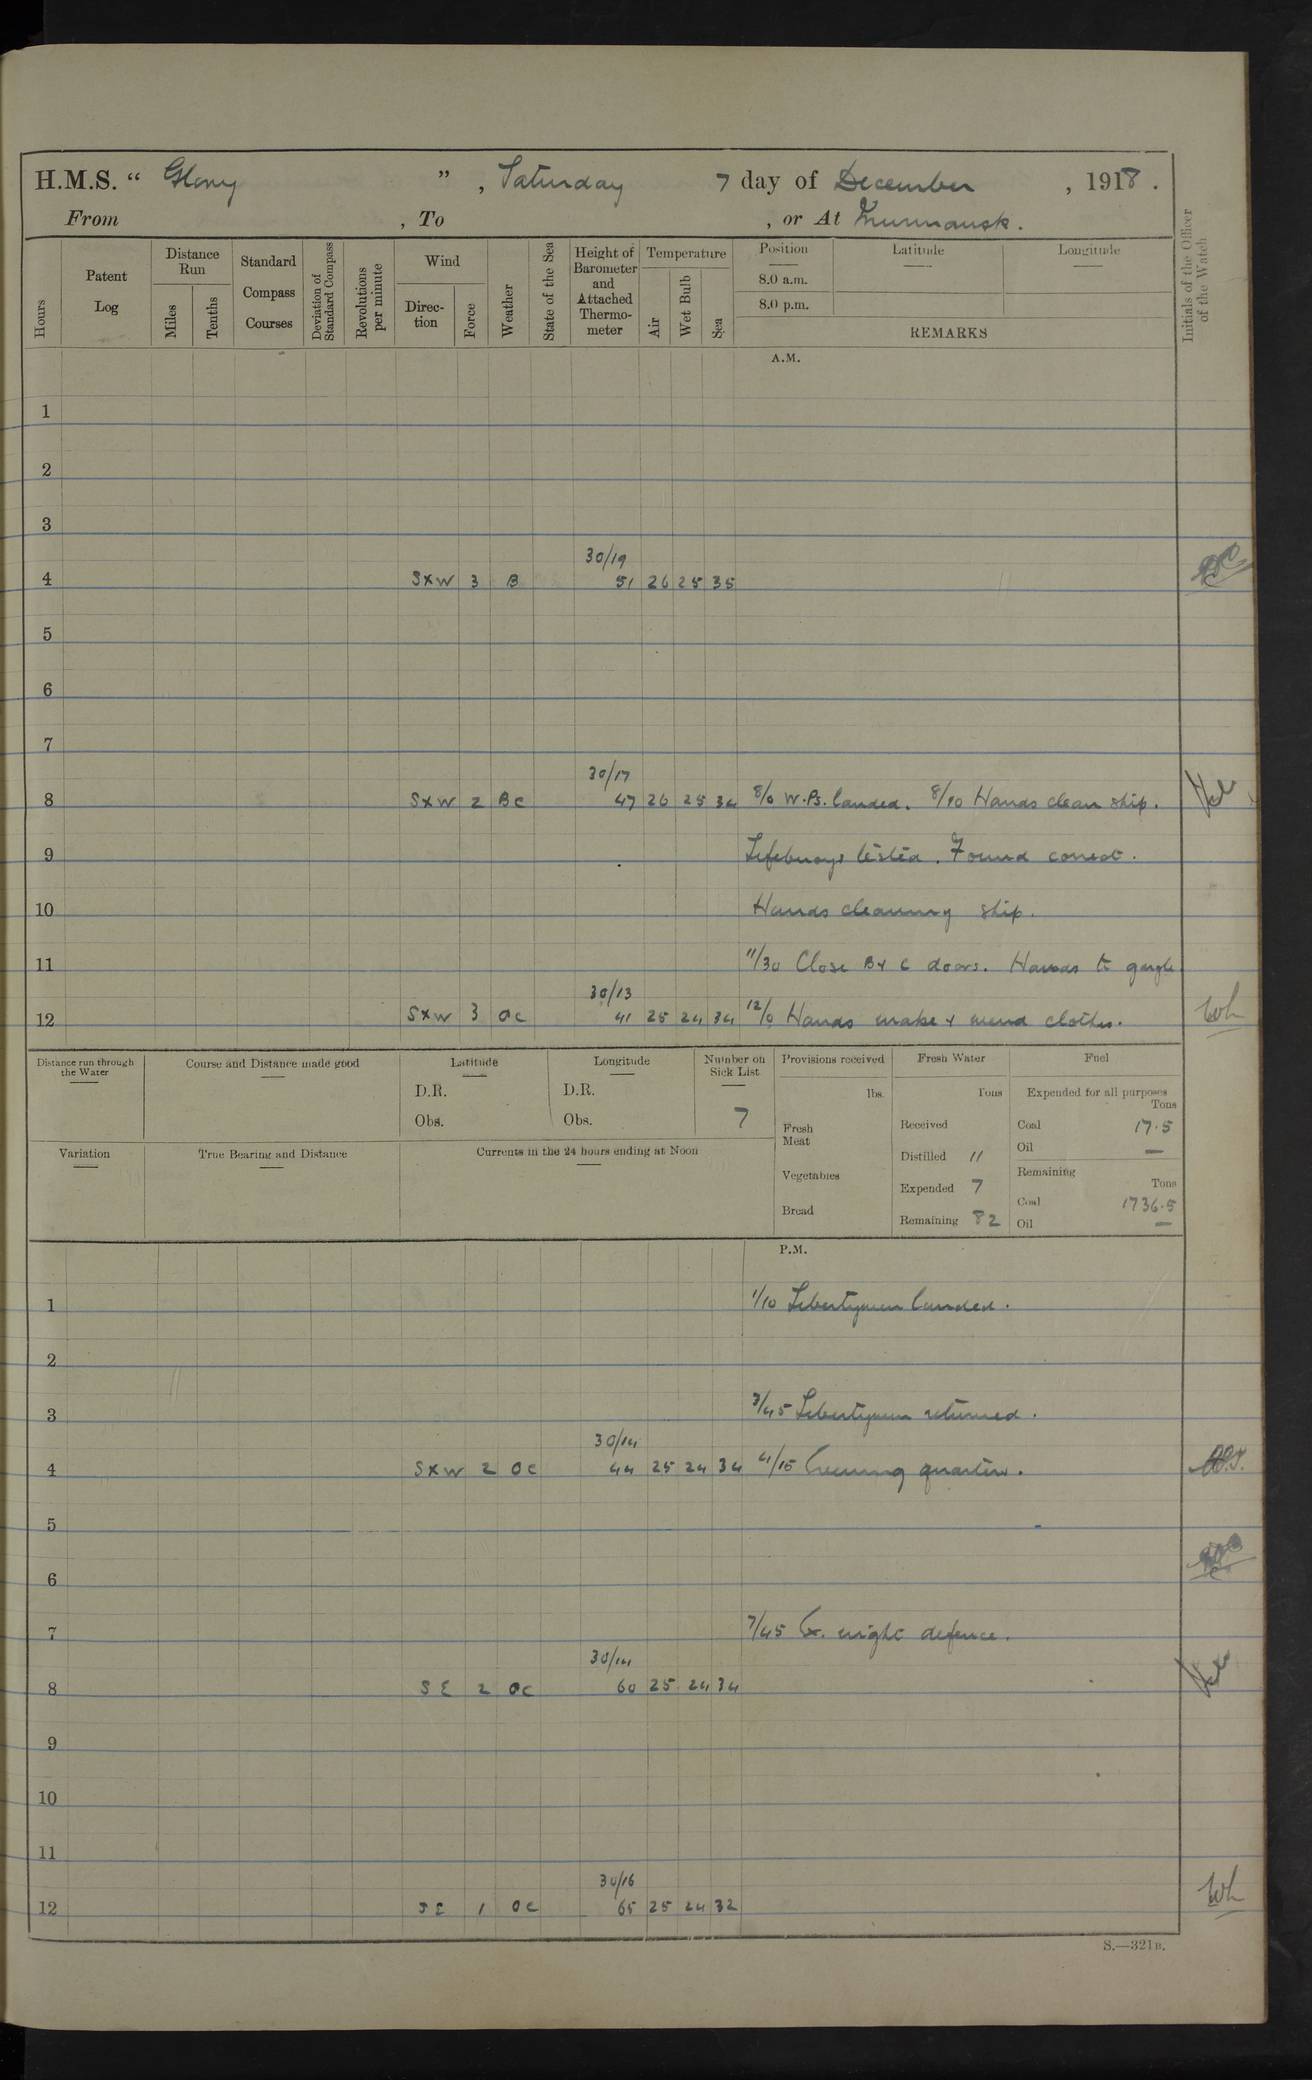 H.M.S. “ Glory ” , Saturday 7 day of December , 1918 .
From , To , or At Murmansk.
Hours
Patent Log
Distance Run
Miles
Tenths
Standard Compass Courses
Deviation of Standard Compass
Revolutions per minute
Wind
Direc-tion
Force
Weather
State of the Sea
Height of Barometer and Attached Thermo-meter
Temperature
Air
Wet Bulb
Sea
Position
8.0 a.m.
8.0 p.m.
Latitude
Longitude
REMARKS
Initials of the Officer of the Watch
A.M.
1
2
3
30/19
4 SxW 3 B 51 26 25 35
5
6
7
30/17
8 SxW 2 BC 47 26 25 34 8/0 W.Ps. landed. 8/10 Hands clean ship.
9 Lifebuoys tested. Found correct.
10 Hands cleaning ship.
11 11/30 Close B & C doors. Hands to gargle
30/13
12 SxW 3 OC 41 25 24 34 12/0 Hands make & mend clothes.
Distance run through the Water
Course and Distance made good
Latitude
D.R.
Obs.
Longitude
D.R.
Obs.
Number on Sick List
7
Variation
True Bearing and Distance
Currents in the 24 hours ending at Noon
Provisions received
lbs.
Fresh Meat
Vegetables
Bread
Fresh Water
Tons
Received
Distilled 11
Expended 7
Remaining 82
Fuel
Expended for all purposes
Tons
Coal 17.5
Oil —
Remaining
Tons
Coal 1736.5
Oil —
P.M.
1 1/10 Libertymen landed.
2
3 3/45 Libertymen returned.
30/14
4 SxW 2 OC 44 25 24 34 4/15 Evening quarters.
5
6
7 7/45 Ex. night defence.
30/14
8 SE 2 OC 60 25 24 34
9
10
11
30/16
12 SE 1 OC 65 25 24 32
S.—321B.